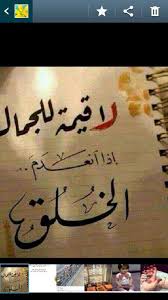 لا قيمة للجمال
إذا انعدم..
الخُلق